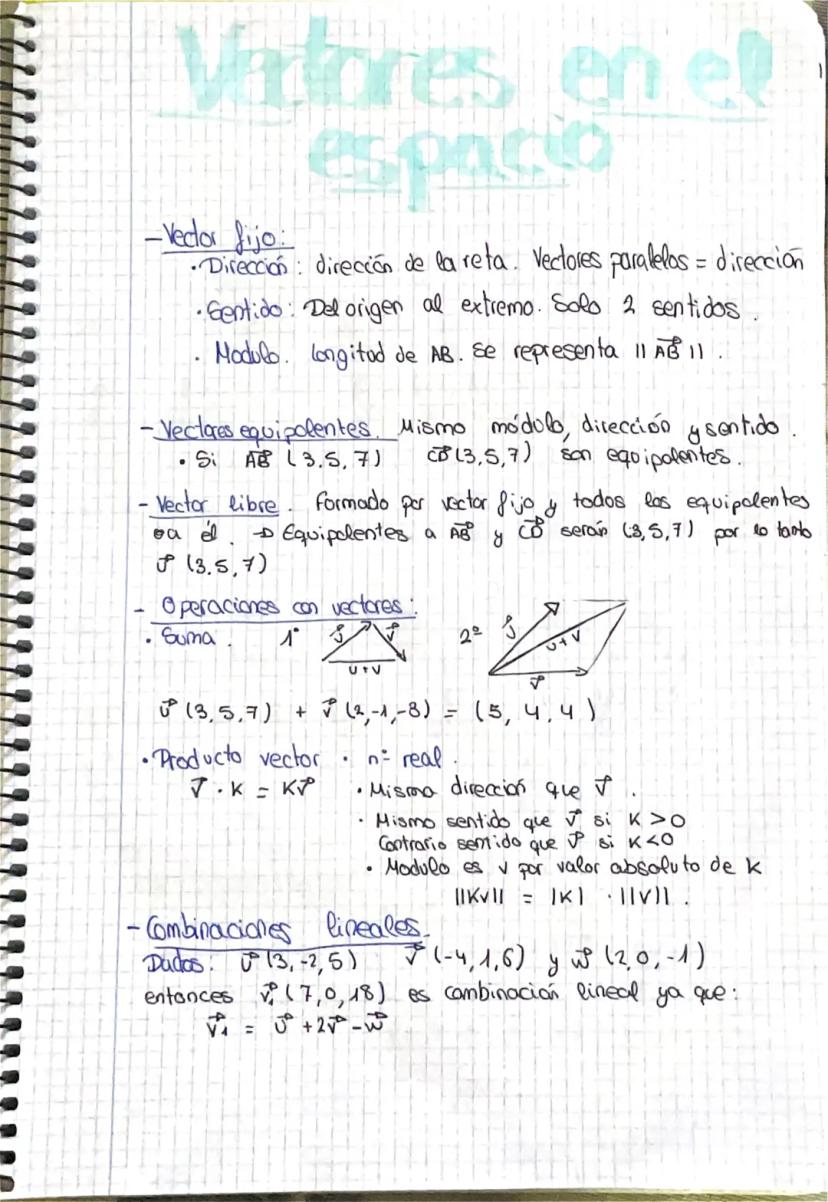 Vectores en el
espacio
- Vector fijo:
· Dirección: dirección de la reta. Vectores paralelos = dirección
· Sentido: Del origen al extremo. Solo 2 sentidos.
· Modulo. Longitud de AB. Se representa || A⃗B⃗ ||.
- Vectores equipolentes. Mismo módulo, dirección y sentido.
· Si A⃗B⃗ (3,5,7) C⃗D⃗ (3,5,7) son equipolentes.
- Vector libre. Formado por vector fijo y todos los equipolentes
a él. → Equipolentes a A⃗B⃗ y C⃗D⃗ serán (3,5,7) por lo tanto
u⃗ (3,5,7)
- Operaciones con vectores:
· Suma. 1º u⃗ v⃗ u+v 2º u⃗ u+v v⃗
u⃗ (3,5,7) + v⃗ (2,-1,-8) = (5, 4, 4)
· Producto vector · nº real.
v⃗ · K = Kv⃗ · Misma dirección que v⃗.
· Mismo sentido que v⃗ si K > 0
Contrario sentido que v⃗ si K < 0
· Modulo es v por valor absoluto de k
||Kv|| = |K| · ||v||.
- Combinaciones lineales.
Dados: u⃗ (3,-2,5) v⃗ (-4,1,6) y w⃗ (2,0,-1)
entonces v⃗₁ (7,0,18) es combinación lineal ya que:
v⃗₁ = u⃗ + 2v⃗ - w⃗